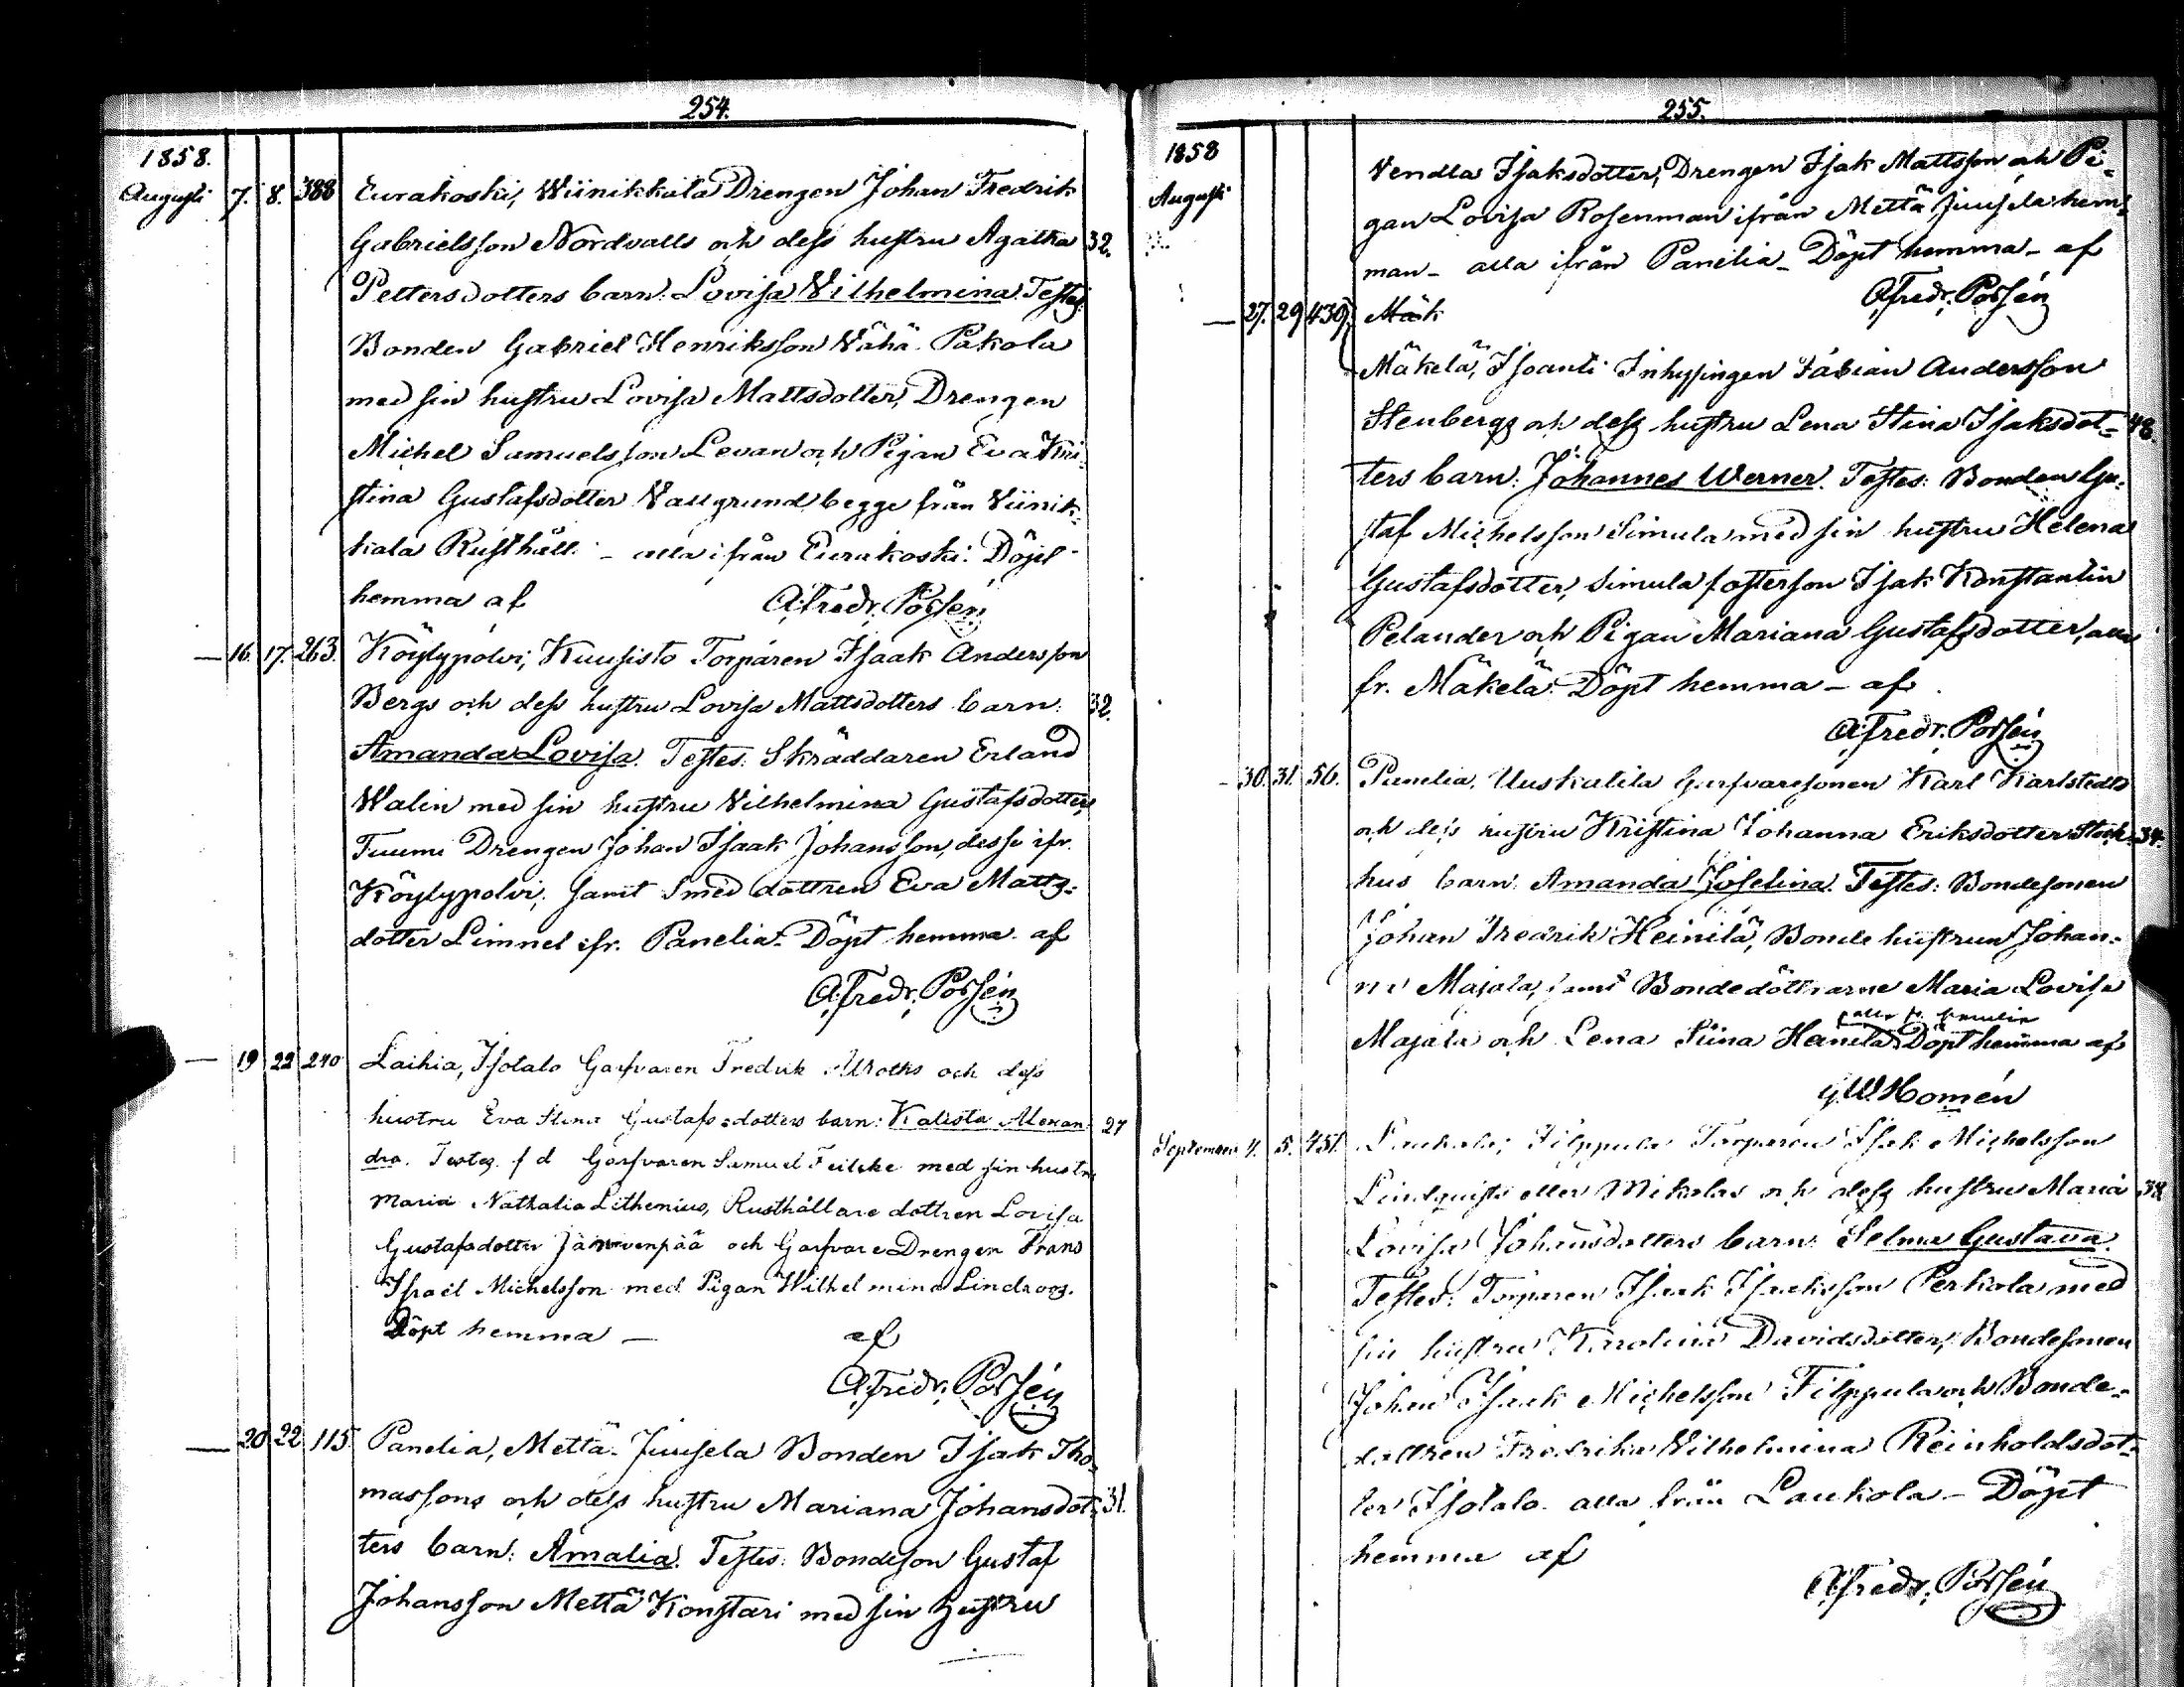 254.
1858.
Augusti 7. 8. 388 Eurakoski, Wiinikkala Drengen Johan Fredrik
Gabrielsson Nordvalls och dess hustru Agatha 32.
Pettersdotters barn: Lovisa Vilhelmina. Testes:
Bonden Gabriel Henriksson Vähä Pakola
med sin hustru Lovisa Mattsdotter, Drengen
Michel Samuelsson Levan och Pigan Eva Kri-
stina Gustafsdotter Vallgrund begge från Viinik-
kala Rusthåll. - alla ifrån Eurakoski: Döpt
hemma af A. Fredr. Porsén
— 16. 17. 263. Köylypolvi, Kuusisto Torparen Isaak Andersson
Bergs och dess hustru Lovisa Mattsdotters barn: 32.
Amanda Lovisa. Testes: Skräddaren Erland
Walin med sin hustru Vilhelmina Gustafsdotter,
Tuumi Drengen Johan Isaak Johansson, desse ifr.
Köylypolvi, samt Smed dottren Eva Matts-
dotter Limnel ifr. Panelia. Döpt hemma. af
A. Fredr. Porsén
— 19 22 240 Laihia, Isotalo Garfvaren Fredrik och dess
hustru Eva Stina Gustafsdotters barn: Kalista Alexan- 27
dra. Testes. f d Garfvaren Samuel med sin hustru
Maria Nathalia Lithenius, Rusthållare dottren Lovisa
Gustafsdotter Järvenpää och Garfvare Drengen Frans
Israel Michelsson med Pigan Wilhelmina Lindroos.
Döpt hemma — af
A. Fredr. Porsén
— 20 22 115. Panelia, Mettä-Juusela Bonden Isak Tho-
massons och dess hustru Mariana Johansdot- 31.
ters barn: Amalia. Testes: Bondeson Gustaf
Johansson Mettä Konstari med sin hustru
255.
1858
Augusti
Vendla Isaksdotter, Drengen Isak Mattsson och Pi-
gan Lovisa Rosenman ifrån Mettä Juusela hem-
man - alla ifrån Panelia - Döpt hemma - af
A. Fredr. Porsén
— 27. 29 439. Mäk
Mäkelä, Isoanti Inhysingen Fabian Andersson
Stenbergs och dess hustru Lena Stina Isaksdot- 48.
ters barn: Johannes Werner. Testes: Bonden Gu-
staf Michelsson Simula med sin hustru Helena
Gustafsdotter, Simula fosterson Isak Konstantin
Pelander och Pigan Mariana Gustafsdotter, alla
fr. Mäkelä. Döpt hemma - af
A. Fredr. Porsén
- 30. 31. 56. Panelia, Uuskalila Garfvaresonen Karl Karlstedts
och dess hustru Kristina Johanna Eriksdotter Stock- 34.
hus barn: Amanda Joselina. Testes: Bondesonen
Johan Fredrik Heinilä, Bonde hustrun Johan-
na Majala, samt Bondedöttrarne Maria Lovisa
alla fr. Panelia
Majala och Lena Stina Heinilä. Döpt hemma af
G. W. Homén
September 4. 5. 451. Laukola, Filppula Torparen Isak Michelsson
Lindqvists eller Mikolas och dess hustru Maria 38
Lovisa Johansdotters barn: Selma Gustava.
Testes: Torparen Isaak Isaaksson Perkola med
sin hustru Karolina Davidsdotter, Bondesonen
Johan Isaak Michelsson Filppula och Bonde-
dottren Fredrika Vilhelmina Reinholdsdot-
ter Isotalo. alla från Laukola - Döpt
hemma af
A. Fredr. Porsén